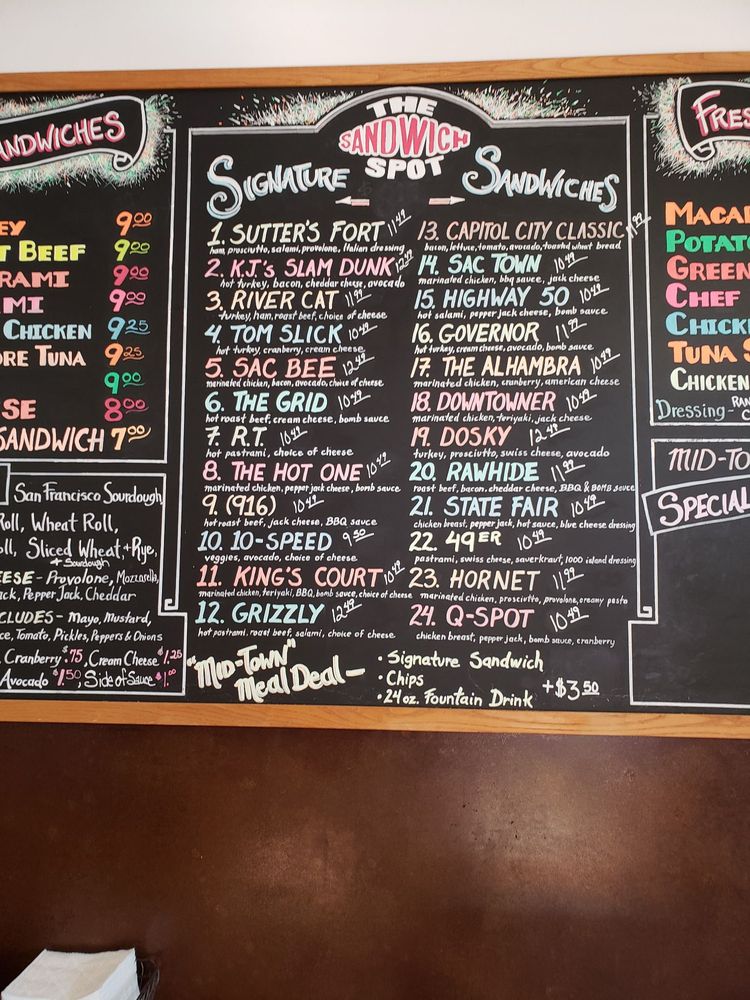 THE
SANDWICH
SPOT
SIGNATURE SANDWICHES
1. SUTTER'S FORT 11.49
ham, prosciutto, salami, provolone, Italian dressing
2. K.J's SLAM DUNK
hot turkey, bacon, cheddar cheese, avocado
3. RIVER CAT 11.99
turkey, ham, roast beef, choice of cheese
4. TOM SLICK 10.49
hot turkey, cranberry, cream cheese
5. SAC BEE 12.49
marinated chicken, bacon, avocado, choice of cheese
6. THE GRID 10.49
hot roast beef, cream cheese, bomb sauce
7. R.T. 10.49
hot pastrami, choice of cheese
8. THE HOT ONE 10.49
marinated chicken, pepper jack cheese, bomb sauce
9. (916) 10.49
hot roast beef, jack cheese, BBQ sauce
10. 10-SPEED 9.50
veggies, avocado, choice of cheese
11. KING'S COURT 10.49
marinated chicken, teriyaki, BBQ, bomb sauce, choice of cheese
12. GRIZZLY 12.49
hot pastrami, roast beef, salami, choice of cheese
13. CAPITOL CITY CLASSIC 11.99
bacon, lettuce, tomato, avocado, toasted wheat bread
14. SAC TOWN 10.49
marinated chicken, bbq sauce, jack cheese
15. HIGHWAY 50 10.49
hot salami, pepper jack cheese, bomb sauce
16. GOVERNOR 11.99
hot turkey, cream cheese, avocado, bomb sauce
17. THE ALHAMBRA 10.49
marinated chicken, cranberry, american cheese
18. DOWNTOWNER 10.49
marinated chicken, teriyaki, jack cheese
19. DOSKY 12.49
turkey, prosciutto, swiss cheese, avocado
20. RAWHIDE 11.99
roast beef, bacon, cheddar cheese, BBQ & BOMB sauce
21. STATE FAIR 10.49
chicken breast, pepper jack, hot sauce, blue cheese dressing
22. 49ER 10.49
pastrami, swiss cheese, sauerkraut, 1000 island dressing
23. HORNET 11.99
marinated chicken, prosciutto, provolone, creamy pesto
24. Q-SPOT 10.49
chicken breast, pepper jack, bomb sauce, cranberry
"MID-TOWN"
Meal Deal -
• Signature Sandwich
• Chips
• 24 oz. Fountain Drink +$3.50
ANDWICHES
EY 9.00
T BEEF 9.00
RAMI 9.00
MI 9.00
CHICKEN 9.25
ORE TUNA 9.25
9.00
SE 8.00
SANDWICH 7.00
San Francisco Sourdough,
Roll, Wheat Roll,
oll, Sliced Wheat, + Rye,
+ Sourdough
EESE - Provolone, Mozzarella,
ack, Pepper Jack, Cheddar
CLUDES - Mayo, Mustard,
ce, Tomato, Pickles, Peppers & Onions
Cranberry $.75, Cream Cheese $1.25
Avocado $1.50, Side of Sauce $1.00
FRES
MACAR
POTATO
GREEN
CHEF
CHICK
TUNA S
CHICKEN
RAN
Dressing -
MID-TO
SPECIAL